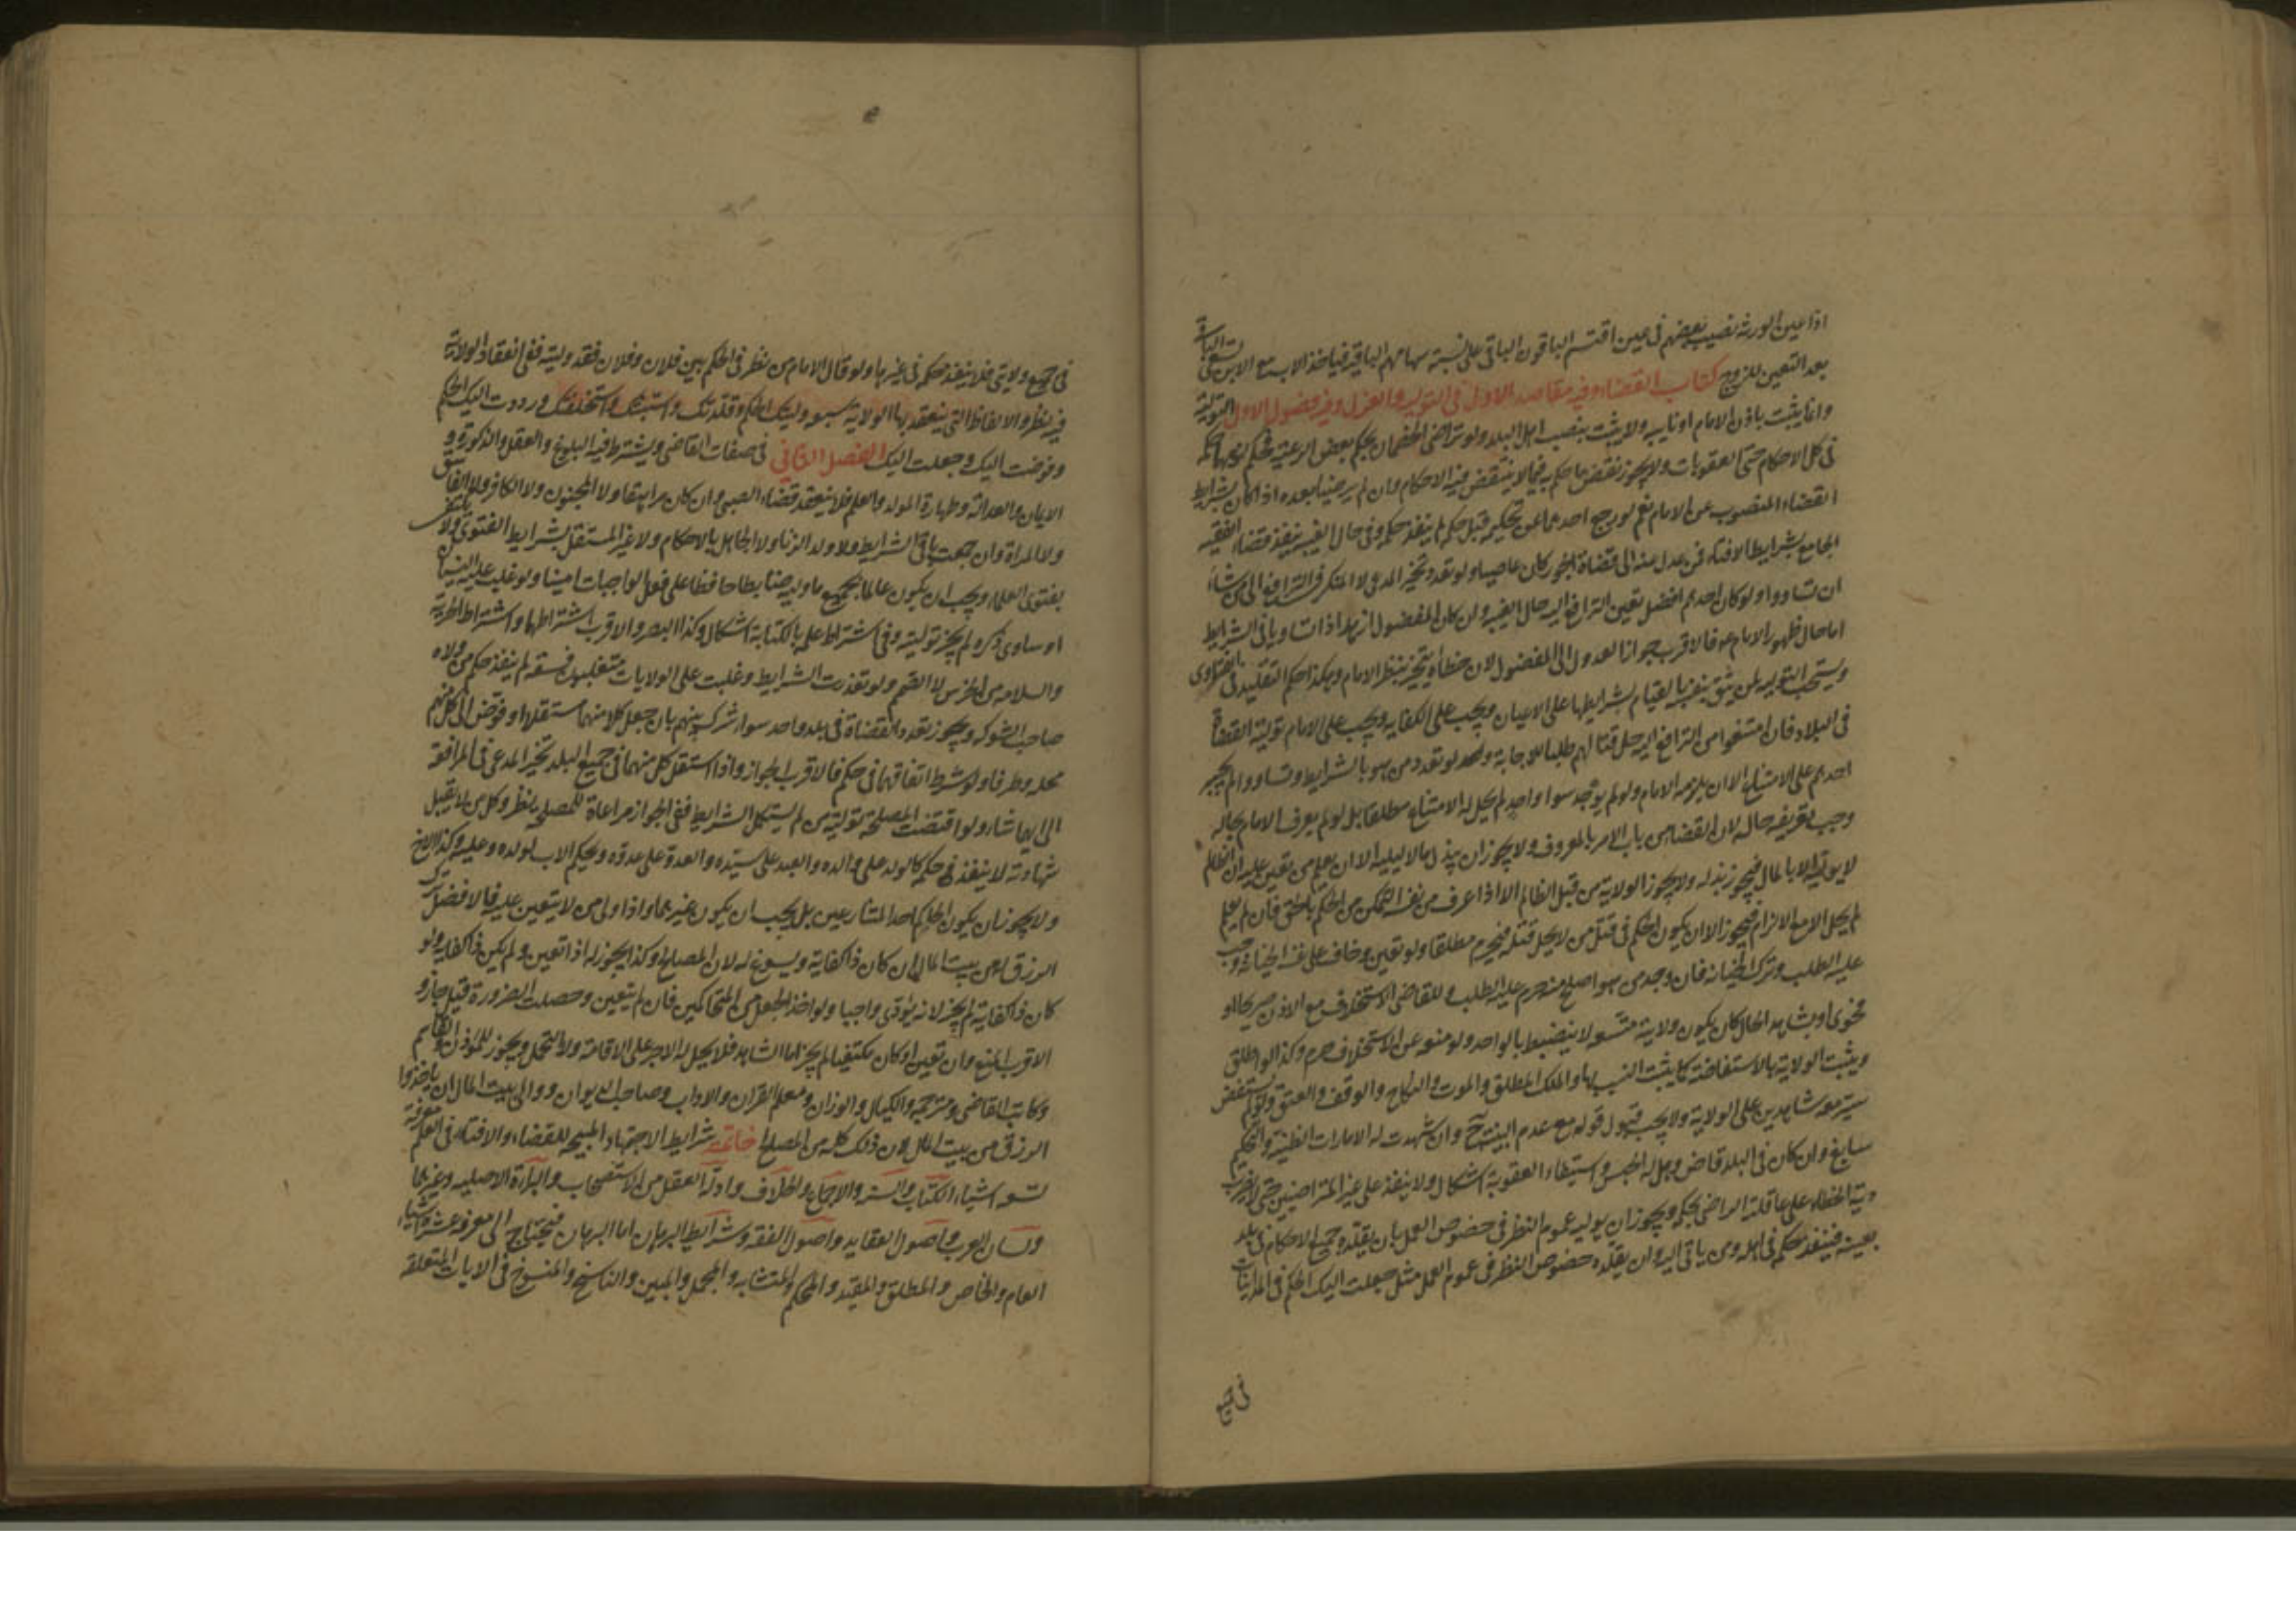 اذا عين الورثة نصيب بعضهم فى عين اقتسم الباقون الباقى على نسبة سهامهم الباقية فياخذ الاب مع الابن
بعد التعين للزوج كتاب القضاء وفيه مقاصد الاول فى التولية والعزل وفيه فصول الاول التولية
وانما يثبت باذن الامام او نايبه ولا يثبت بنصب اهل البلد ولو تراضى الخصمان بحكم بعض الرعية فحكم لزمهما حكمه
فى كل الاحكام حتى العقوبات ولا يجوز نقض ما حكم به فيما لا ينتقض فيه الاحكام وان لم يرضيا بعده اذا كان بشرايط
القضاء المنصوب عن الامام نعم لو رجع احدهما عن تحكيمه قبل حكمه لم ينفذ حكمه وفى حال الغيبة ينفذ قضاء الفقيه
الجامع لشرايط الافتاء فمن عدل عنه الى قضاة الجور كان عاصيا ولو تعدد تخير المدعى لا المنكر فى الترافع الى من شاء
ان تساووا ولو كان احدهم افضل تعين الترافع اليه حال الغيبة وان كان المفضول ازهد اذا تساويا فى الشرايط
اما حال ظهور الامام ع فالاقرب جواز العدول الى المفضول لان خطأه ينجبر بنظر الامام وهكذا حكم التقليد فى الفتاوى
ويستحب التولية لمن يثق بنفسه بالقيام بشرايطها على الاعيان ويجب على الكفاية ويجب على الامام تولية القضاة
فى البلاد فان امتنعوا من الترافع اليه حل قتالهم طلبا للاجابة ولو تعدد من هو بالشرايط وتساووا لم يجبر
احدهم على الامتناع الا ان يلزمه الامام ولو لم يوجد سوا واحد لم يحل له الامتناع مطلقا بل لو لم يعرف الامام بحاله
وجب تعريفه حاله لان القضا من باب الامر بالمعروف ولا يجوز ان يبذل مالا ليليه الا ان يعلم من تعين عليه ان الظالم
لا يوليه الا بالمال فيجوز بذله ولا يجوز الولاية من قبل الظالم الا اذا عرف من نفسه التمكن من الحكم بالحق فان لم يعلم
لم يحل الا مع الالزام فيجوز الا ان يكون الحكم فى قتل من لا يحل قتله فيحرم مطلقا ولو تعين وخاف على نفسه الخيانة وجب
عليه الطلب وترك الخيانة فان وجد من هو اصلح منه حرم عليه الطلب وللقاضى الاستخلاف مع الاذن صريحا او
فحوى او بشاهد الحال كان يكون ولايته متسعة لا ينضبط بالواحد ولو منعه عن الاستخلاف حرم وكذا لو اطلق
ويثبت الولاية بالاستفاضة كما يثبت النسب بها والملك المطلق والموت والنكاح والوقف والعتق ولو لم يستفض
سير معه شاهدين على الولاية ولا يجب قبول قوله مع عدم البينة وان شهدت له الامارات الظنية والتحكيم
سايغ وان كان فى البلد قاض وهل له الحبس واستيفاء العقوبة اشكال ولا ينفذ على غير المتراضيين حتى لا يضرب
دية الخطاء على عاقلة الراضى بحكمه ويجوز ان يوليه عموم النظر فى خصوص العمل بان يقلده جميع الاحكام فى بلد
بعينه فينفذ حكمه فى اهله ومن ياتى اليه وان يقلده خصوص النظر فى عموم العمل مثل جعلت اليك الحكم فى المداينات
فى جميع
فى جميع ولايتى فلا ينفذ حكمه فى غيرها ولو قال الامام من نظر فى الحكم بين فلان وفلان فقد وليته ففى انعقاد الولاية
فيه نظر والالفاظ التى ينعقد بها الولاية سبعة وليتك الحكم وقلدتك واستنبتك واستخلفتك ورددت اليك الحكم
وفوضت اليك وجعلت اليك الفصل الثانى فى صفات القاضى ويشترط فيه البلوغ والعقل والذكورة و
الايمان والعدالة وطهارة المولد والعلم فلا ينعقد قضاء الصبى وان كان مراهقا ولا المجنون ولا الكافر ولا الفاسق
ولا المراة وان جمعت باقى الشرايط ولا ولد الزنا ولا الجاهل بالاحكام ولا غير المستقل بشرايط الفتوى ولا يكتفى
بفتوى العلماء ويجب ان يكون عالما بجميع ما وليه ضابطا حافظا على فعل الواجبات امينا ولو غلب عليه النسيان
او ساوى ذكره لم يجز توليته وفى اشتراط علمه بالكتابة اشكال وكذا البصر والاقرب اشتراطهما واشتراط الحرية
والسلامة من الخرس لا الصمم ولو تعذرت الشرايط وغلبت على الولايات متغلب فسقة لم ينفذ حكم من ولاه
صاحب الشوكة ويجوز تعدد القضاة فى بلد واحد سواء شرك بينهم بان جعل كلا منهما مستقلا او فوض الى كل منهم
محلة وطرفا ولو شرط اتفاقهما فى حكم فالاقرب الجواز واذا استقل كل منهما فى جميع البلد تخير المدعى فى المرافعة
الى ايهما شاء ولو اقتضت المصلحة تولية من لم يستكمل الشرايط ففى الجواز مراعاة للمصلحة نظر وكل من لا يقبل
شهادته لا ينفذ حكمه كالولد على والده والعبد على سيده والعدو على عدوه ويحكم الاب لولده وعليه وكذا الاخ
ولا يجوز ان يكون الحاكم احد المتنازعين بل يجب ان يكون غيرهما واذا ولى من لا يتعين عليه فالافضل ترك
الرزق له من بيت المال ان كان ذا كفاية ويسوغ له لانه من المصالح وكذا يجوز له اذا تعين ولم يكن ذا كفاية ولو
كان ذا كفاية لم يجز لانه يؤدى واجبا ولو اخذ الجعل من المتحاكمين فان لم يتعين وحصلت الضرورة قيل جاز و
الاقرب المنع وان تعين او كان مكتفيا لم يجز اما الشاهد فلا يحل له الاجر على الاقامة ولا التحمل ويجوز للمؤذن والقاسم
وكاتب القاضى ومترجمه والكيال والوزان ومعلم القران والاداب وصاحب الديوان ووالى بيت المال ان ياخذوا
الرزق من بيت المال لان ذلك كله من المصالح خاتمة شرايط الاجتهاد المبيح للقضاء والافتاء فى العلم معرفة
تسعة اشياء الكتاب والسنة والاجماع والخلاف وادلة العقل من الاستصحاب والبراءة الاصلية وغيرهما
ولسان العرب واصول العقايد واصول الفقه وشرايط البرهان اما البرهان فيحتاج الى معرفة عشرة اشياء
العام والخاص والمطلق والمقيد والمحكم والمتشابه والمجمل والمبين والناسخ والمنسوخ فى الايات المتعلقة